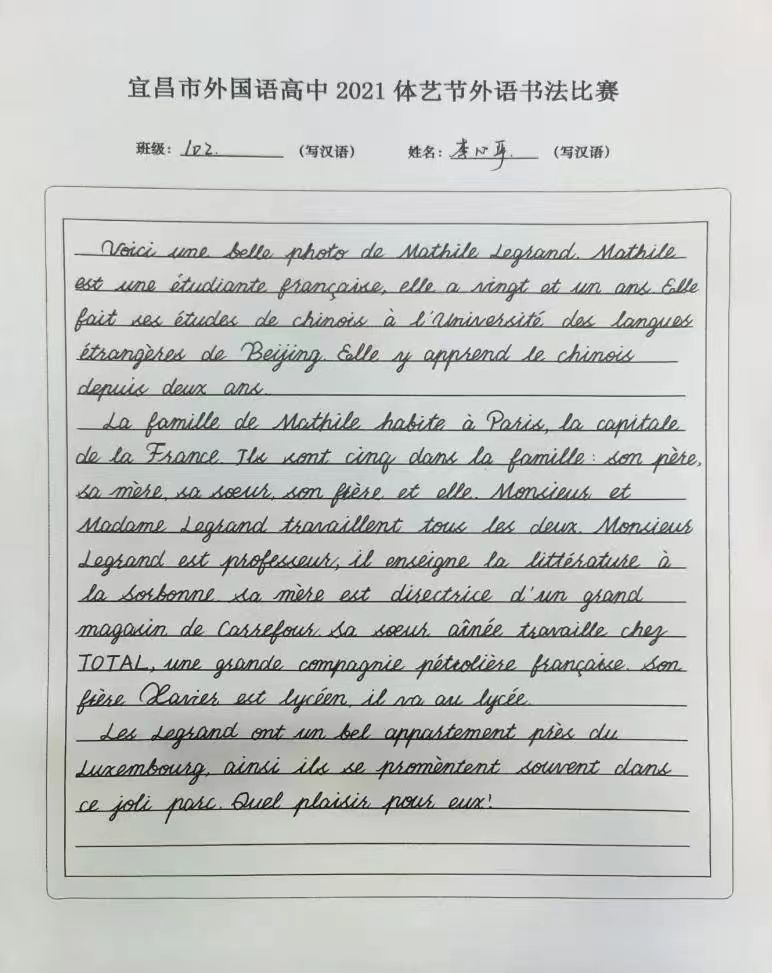 宜昌市外国语高中 2021 体艺节外语书法比赛
班级: 102. (写汉语) 姓名: 李心 (写汉语)
Voici une belle photo de Mathile Legrand. Mathile
est une étudiante française, elle a vingt et un ans. Elle
fait ses études de chinois à l'Université des langues
étrangères de Beijing. Elle y apprend le chinois
depuis deux ans.
La famille de Mathile habite à Paris, la capitale
de la France. Ils sont cinq dans la famille : son père,
sa mère, sa sœur, son frère et elle. Monsieur et
Madame Legrand travaillent tous les deux. Monsieur
Legrand est professeur, il enseigne la littérature à
la Sorbonne. Sa mère est directrice d'un grand
magasin de Carrefour. Sa sœur aînée travaille chez
TOTAL, une grande compagnie pétrolière française. Son
frère Xavier est lycéen, il va au lycée.
Les Legrand ont un bel appartement près du
Luxembourg, ainsi ils se promèntent souvent dans
ce joli parc. Quel plaisir pour eux!